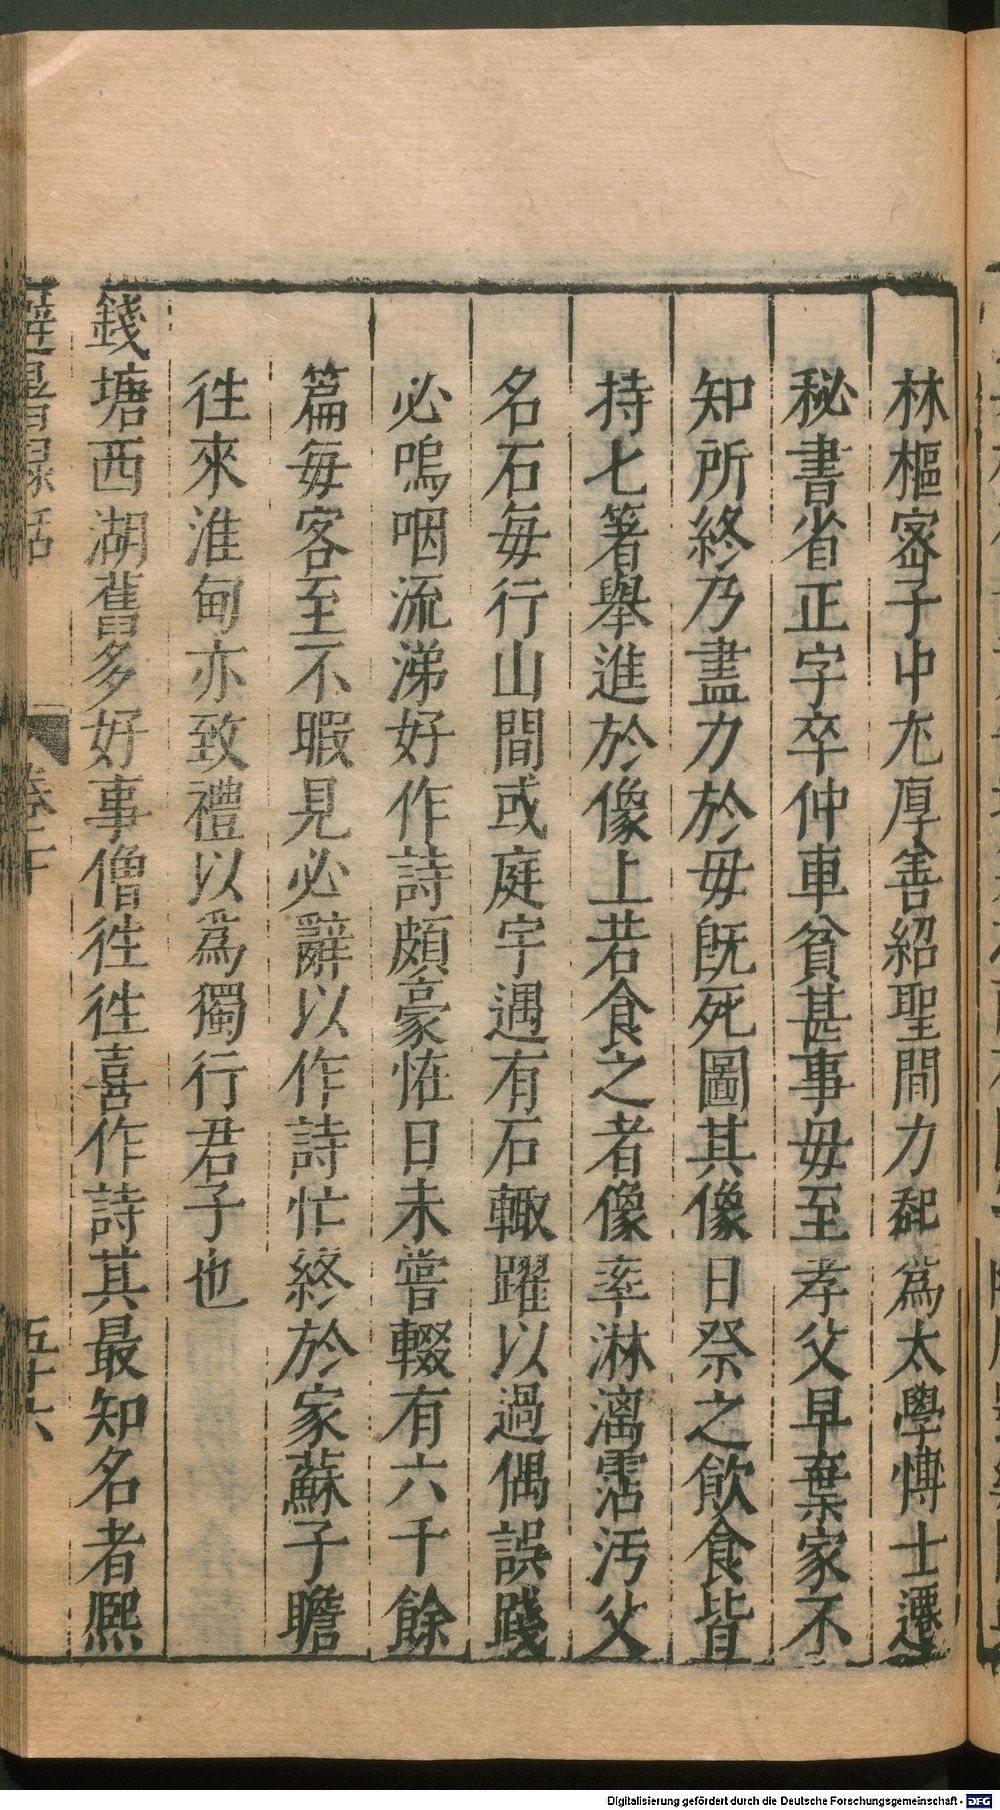 林樞宻子中尤厚善紹聖間力薦爲太學博士遷
秘書省正字卒仲車貧甚事毋至孝父早棄家不
知所終乃盡力於毋旣死圖其像日祭之飲食皆
持七箸舉進於像上若食之者像率淋漓霑汚父
名石毎行山間或庭宇遇有石輙躍以過偶誤踐
必嗚咽流涕好作詩頗豪怪日未嘗輟有六千餘
篇毎客至不暇見必辭以作詩忙終於家蘇子瞻
徃來淮甸亦致禮以爲獨行君子也
錢塘西湖舊多好事僧徃徃喜作詩其最知名者熈
避暑錄話 卷下 五十六
Digitalisierung gefördert durch die Deutsche Forschungsgemeinschaft - DFG